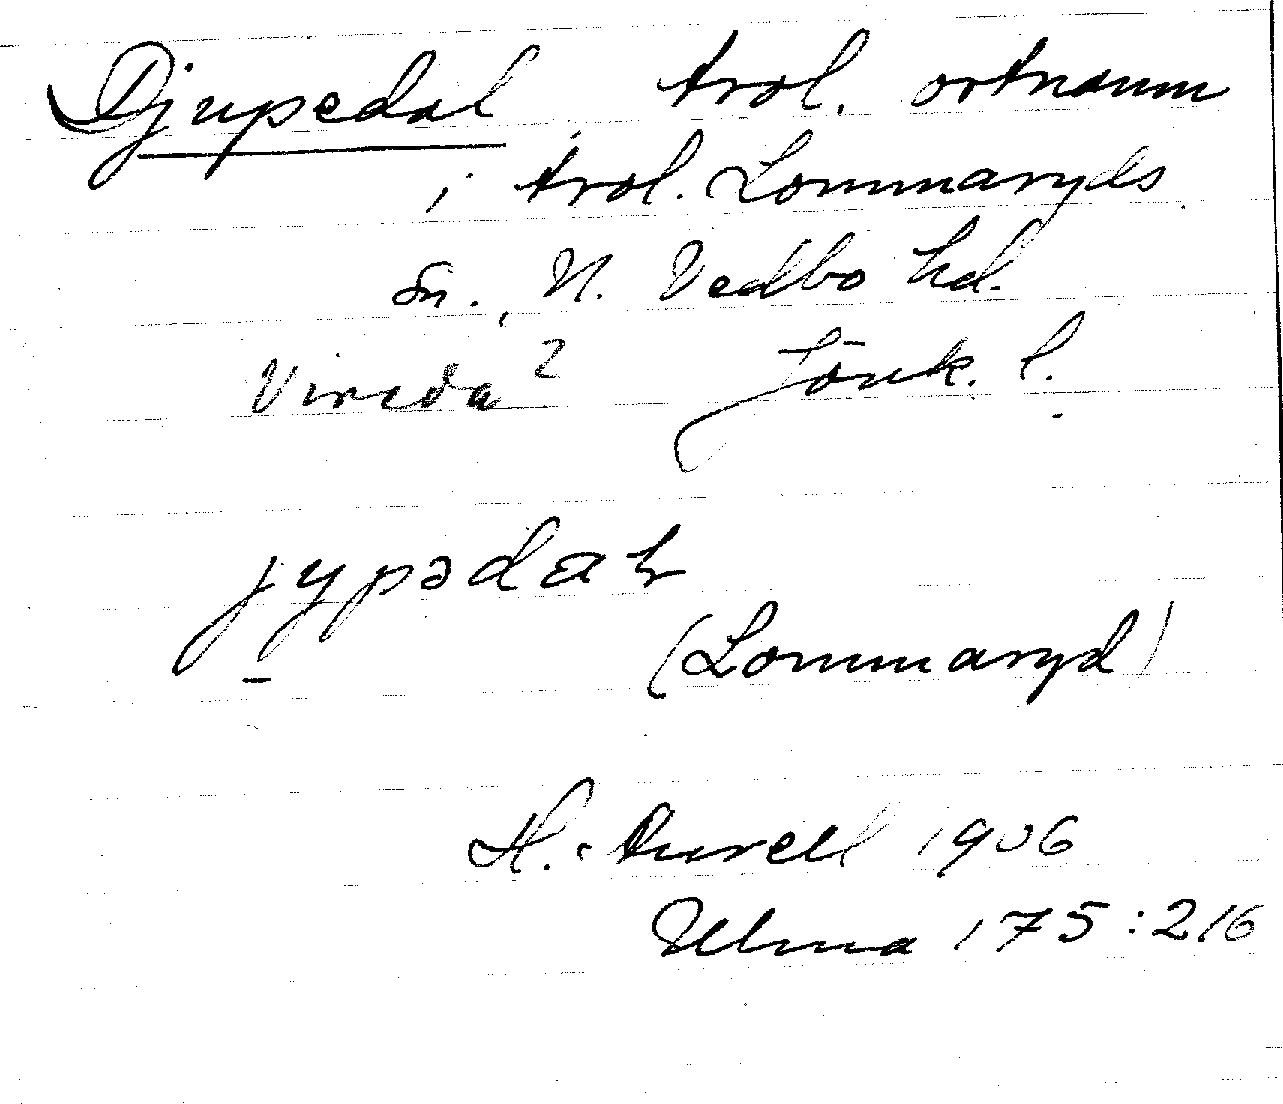 Djupedal trol. ortnamn
i trol. Lommaryds
sn. N. Vedbo hd.
Vireda? Jönk. l.
jypədaɫ
(Lommaryd)
H. Aurell 1906
Ulma 175:216